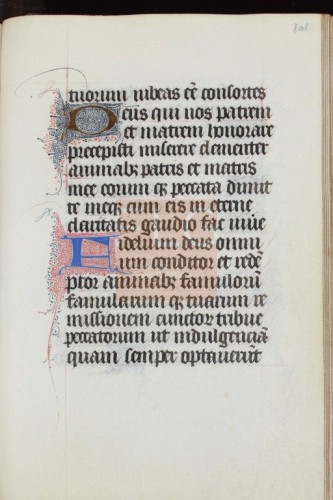 101
tuorum iubeas eē consortes
Deus qui nos patrem
et matrem honorare
precepisti miserere clementer
animabꝫ patris et matris
mee eorum qꝫ peccata dimit
te meqꝫ cum eis in eterne
claritatis gaudio fac uiuē
Fidelium deus omni
um conditor et redē
ptor animabꝫ famulorū
famularum qꝫ tuarum re
missionem cunctor tribue
peccatorum ut indulgenciā
quam semper optauerūt